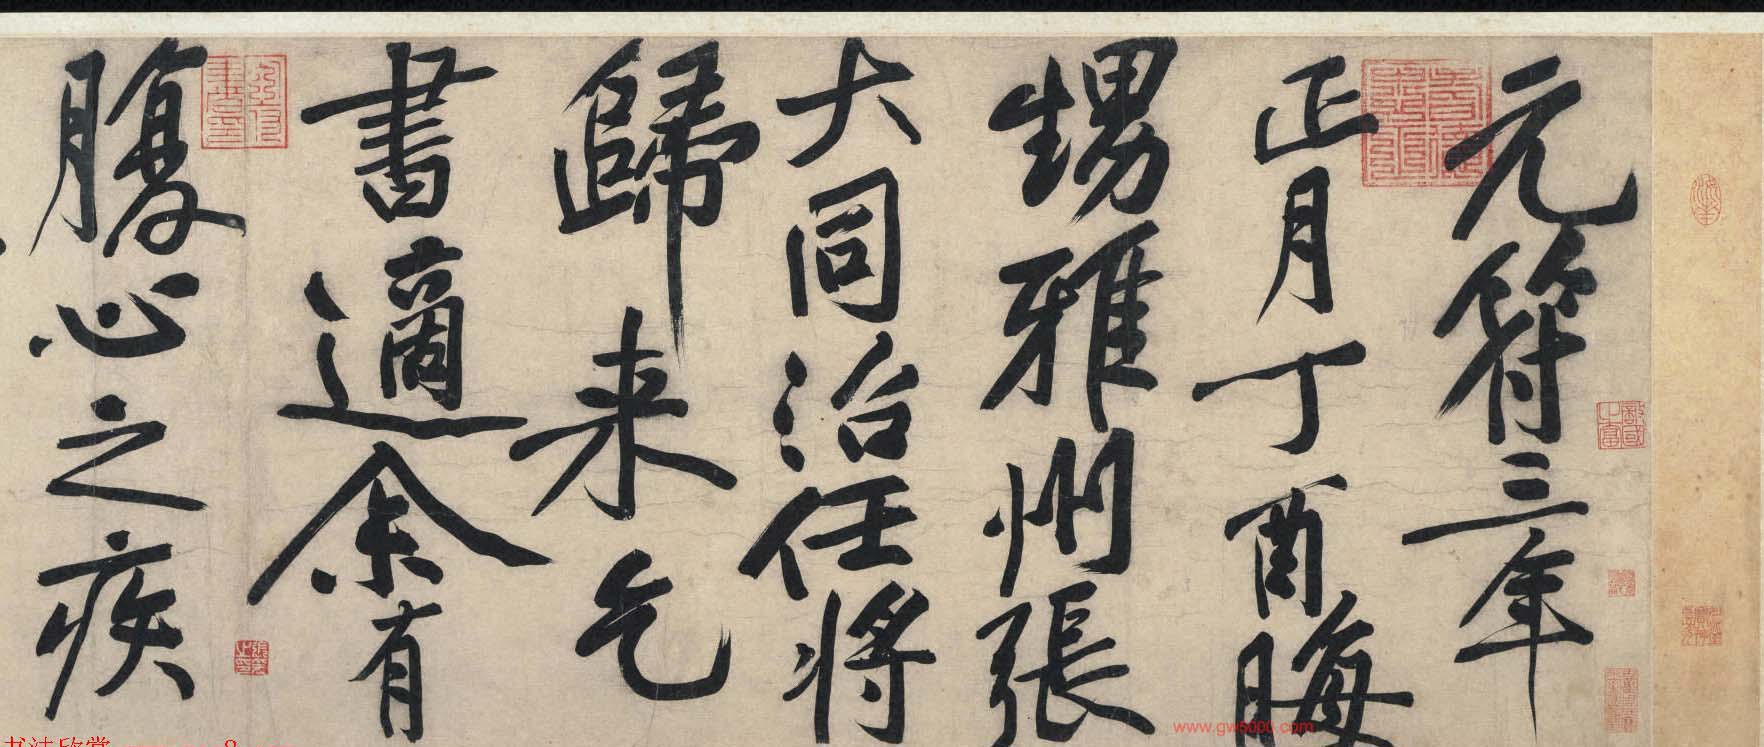 元符三年
正月丁酉晦
甥雅州張
大同治任將
歸来乞
書適余有
腹心之疾
www.gw6000.com
书法欣赏